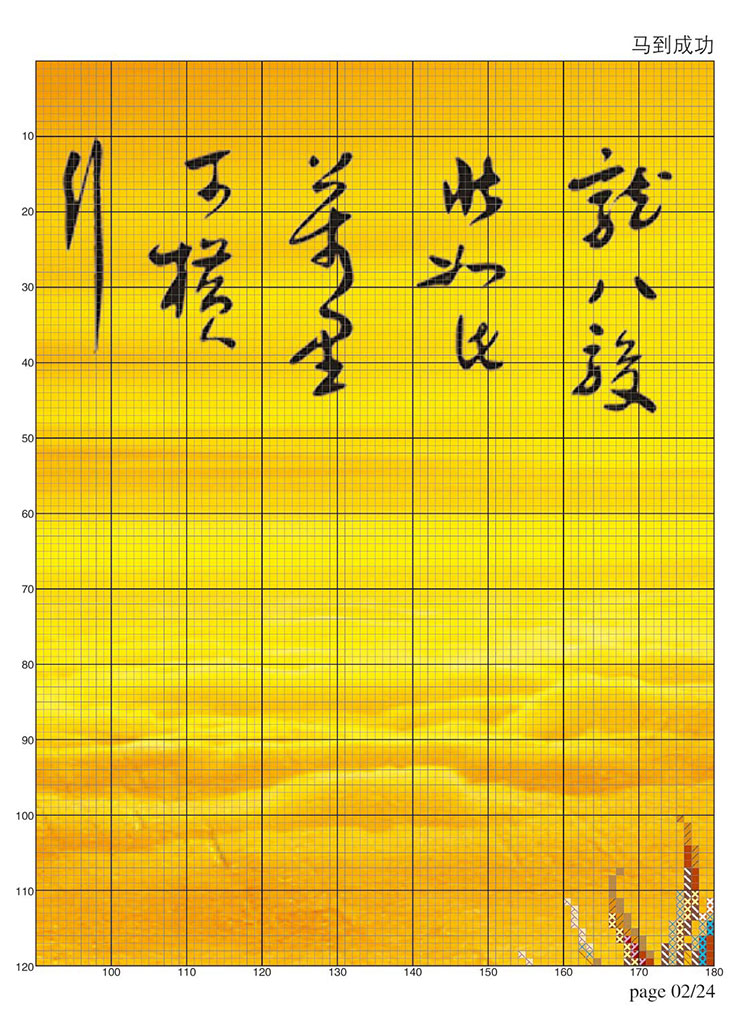 马到成功
龍八駿
如此
萬里
可橫
行
10
20
30
40
50
60
70
80
90
100
110
120
100 110 120 130 140 150 160 170 180
page 02/24